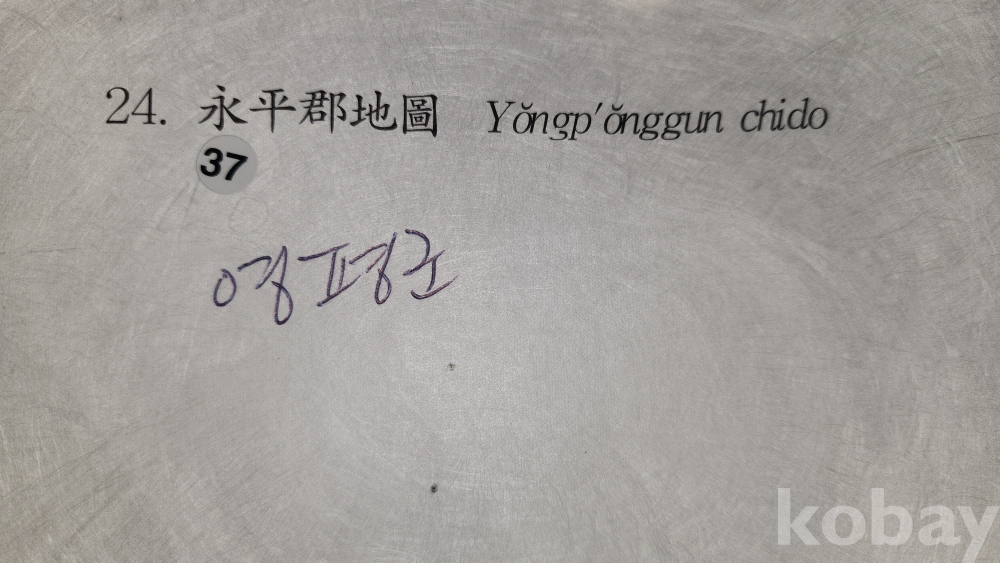 24. 永平郡地圖 Yŏngp'ŏnggun chido
37
영평군
kobay